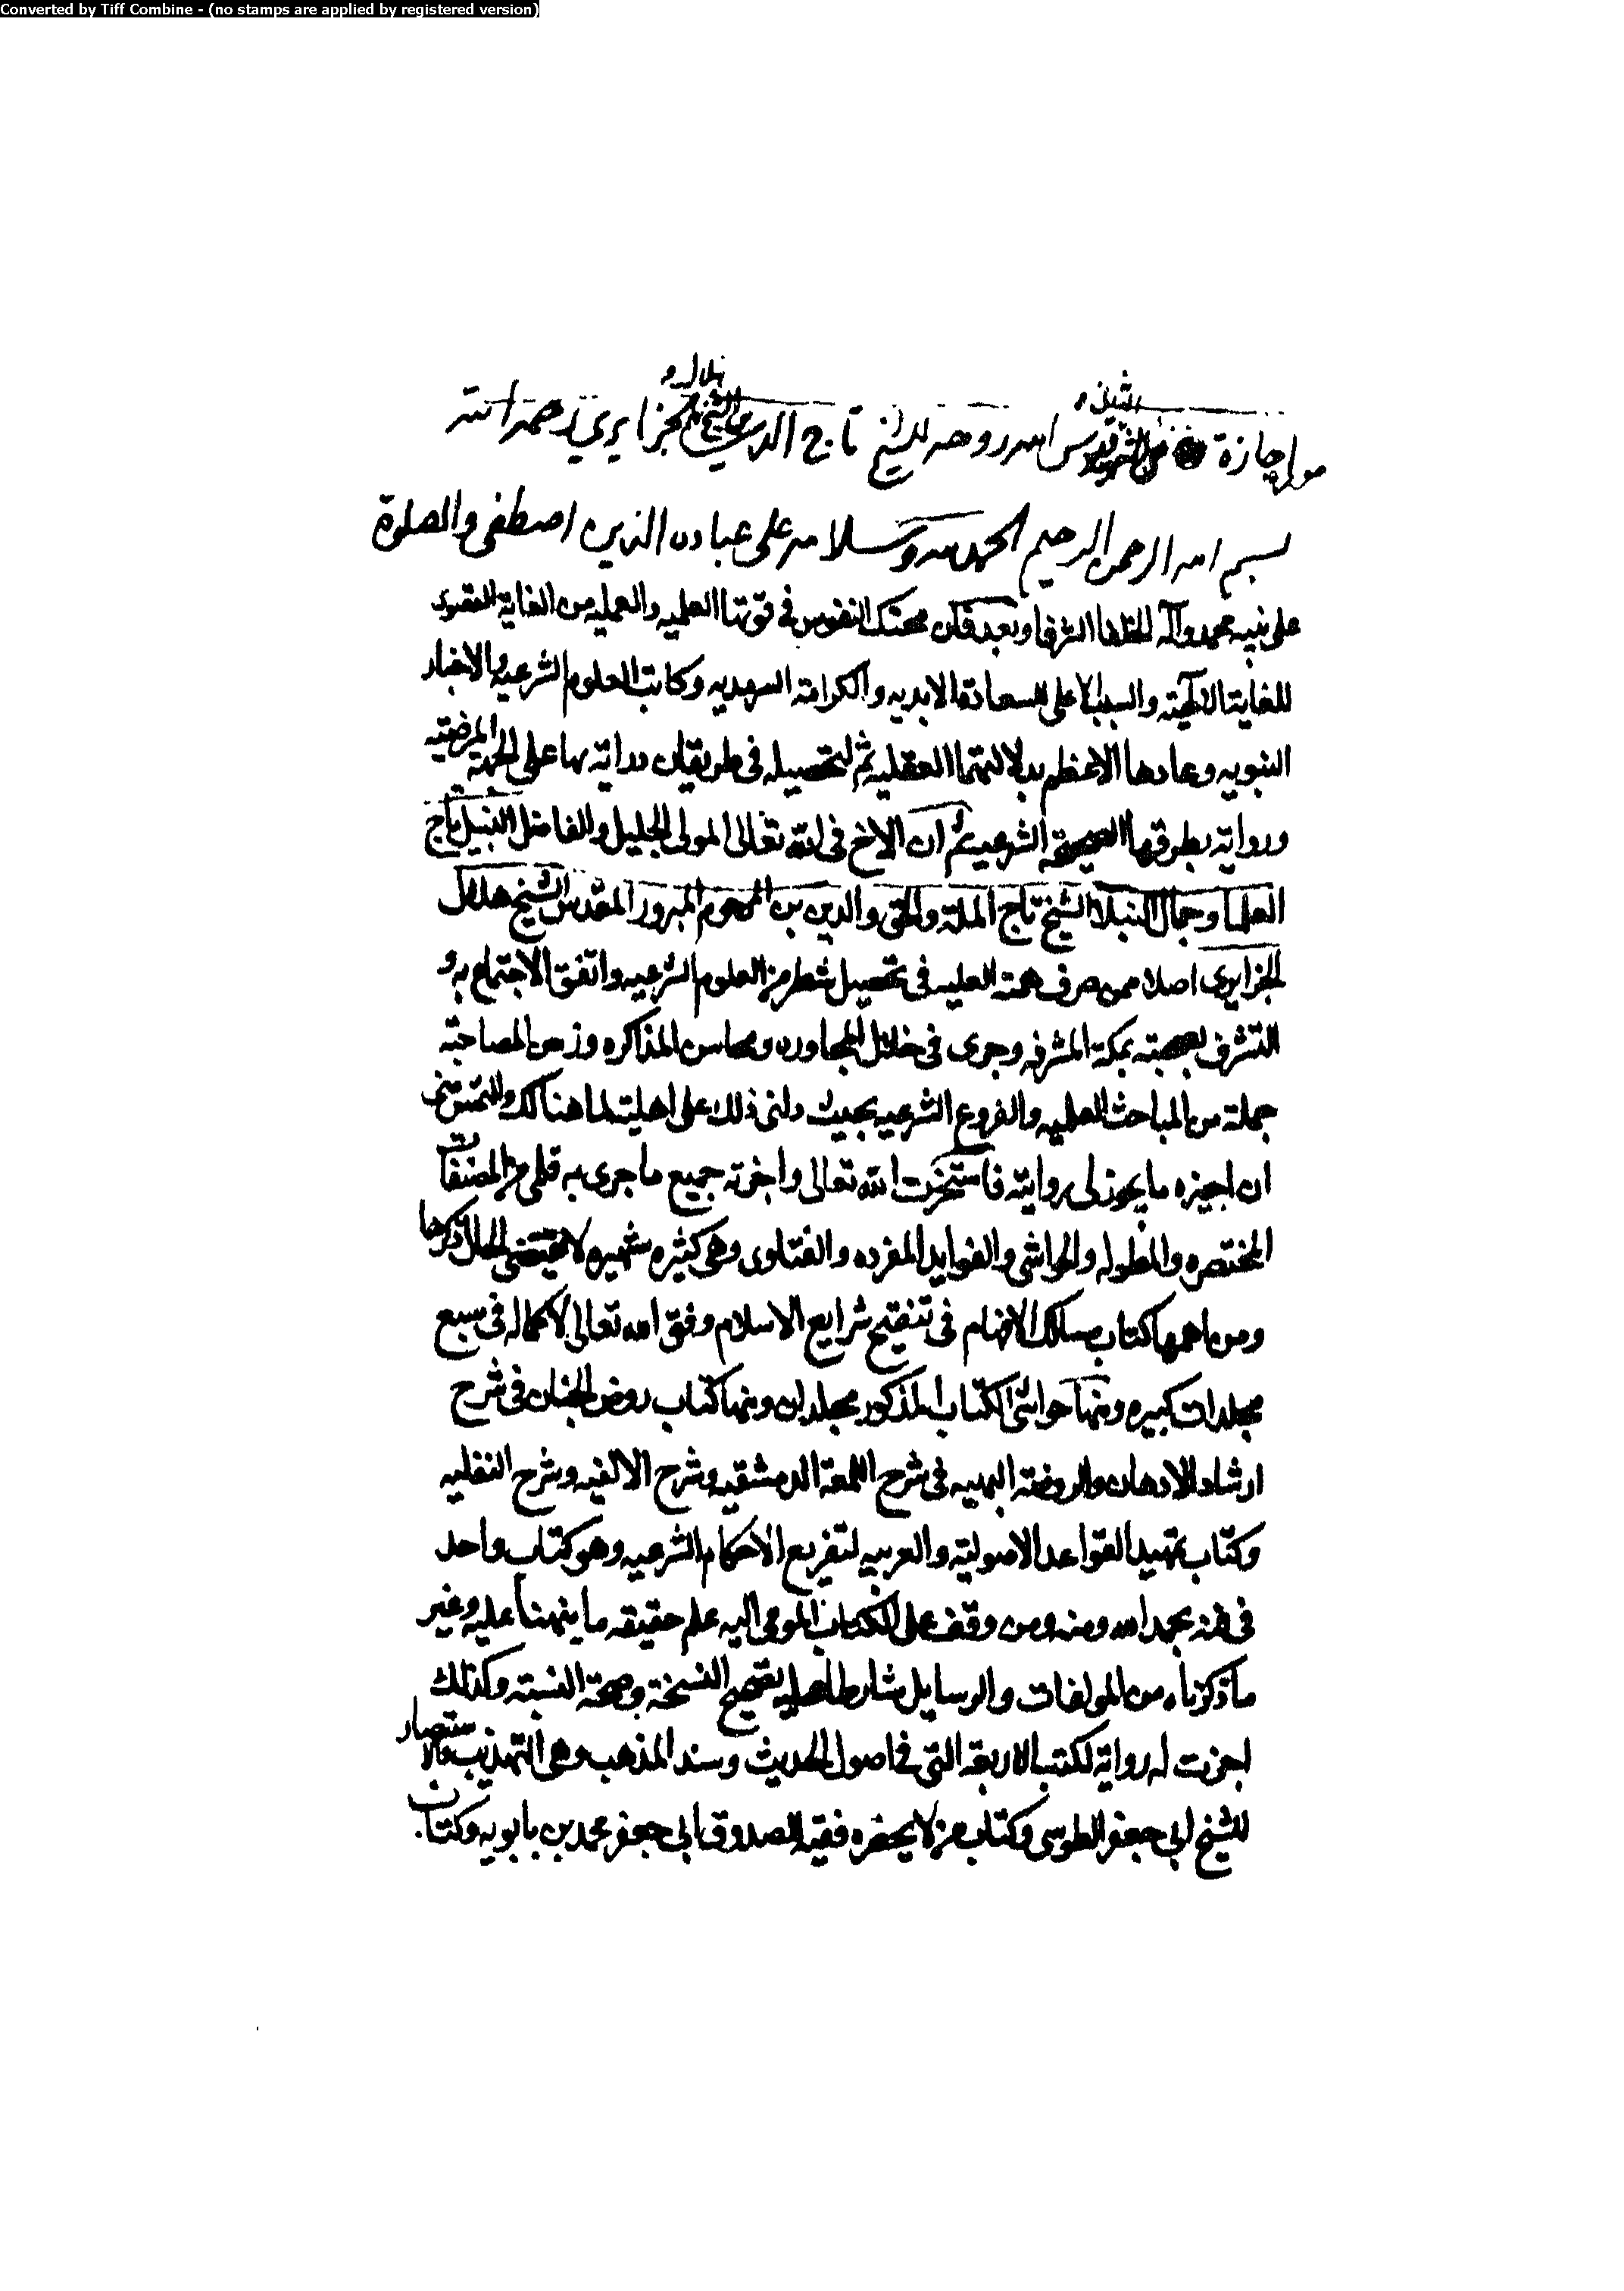 Converted by Tiff Combine - (no stamps are applied by registered version)
الثاني هلال
صورة اجازة قدس الله روحه للشيخ تاج الدين بن الشيخ الجزايري رحمه الله
بسم الله الرحمن الرحيم الحمد لله وسلام على عباده الذين اصطفى والصلوة
على نبيه محمد وآله الشرفا وبعد فان النفوس في قوتها العلميه والعمليه من الغاية القصوى
والسبب الاعلى للسعادة الابديه والكرامة السرمديه وكانت العلوم الشرعيه والاخبار
النبويه وعمادها الاعظم بدلالتهما العقليه ثم لتحصيله في طريقان دراية بها على الجهة المرضيه
ورواية بطرقها الصحيحة الشرعيه ثم ان الاخ في الله تعالى المولى الجليل والفاضل النبيل تاج
العلما وجمال النبلا الشيخ تاج الملة والحق والدين بن المرحوم المبرور المقدس الشيخ هلال
الجزايري اصلا ممن صرف همته العليه في تحصيل شطر من العلوم الشرعيه واتفق الاجتماع به و
التشرف بصحبته بمكة المشرفه وجرى في خلال المجاوره ومحاسن المذاكره وزمن المصاحبة
جملة من المباحث العلميه والفروع الشرعيه بحيث دلني ذلك على اهليته لما هنالك والتمس مني
ان اجيزه ما يجوز لي روايته فاستخرت الله تعالى واجزته جميع ما جرى به قلمي من المصنفات
المختصره والمطوله والحواشي والفوايد المفرده والفتاوى وهي كثيره شهيره لا يقتضي الحال ذكرها
ومن اهمها كتاب مسالك الافهام في تنقيح شرايع الاسلام وفق الله تعالى لاكماله في سبع
مجلدات كبيره ومنها حواشي الكتاب المذكور مجلدان ومنها كتاب روض الجنان في شرح
ارشاد الاذهان والروضة البهيه في شرح اللمعة الدمشقيه وشرح الالفيه وشرح النفليه
وكتاب تمهيد القواعد الاصولية والعربيه لتفريع الاحكام الشرعيه وهو كتاب واحد
في فنه بحمد الله ومنه ومن وقف على الكتاب المومى اليه علم حقيقه ما نبهنا عليه وغير
ما ذكرناه من المولفات والرسايل شارطا عليه تصحيح النسخة وصحة النسبة وكذلك
اجزت له رواية الكتب الاربعة التي هي اصول الحديث وسند المذهب وهي التهذيب والاستبصار
للشيخ ابي جعفر الطوسي وكتاب من لا يحضره فقيه للصدوق ابي جعفر محمد بن بابويه وكتاب